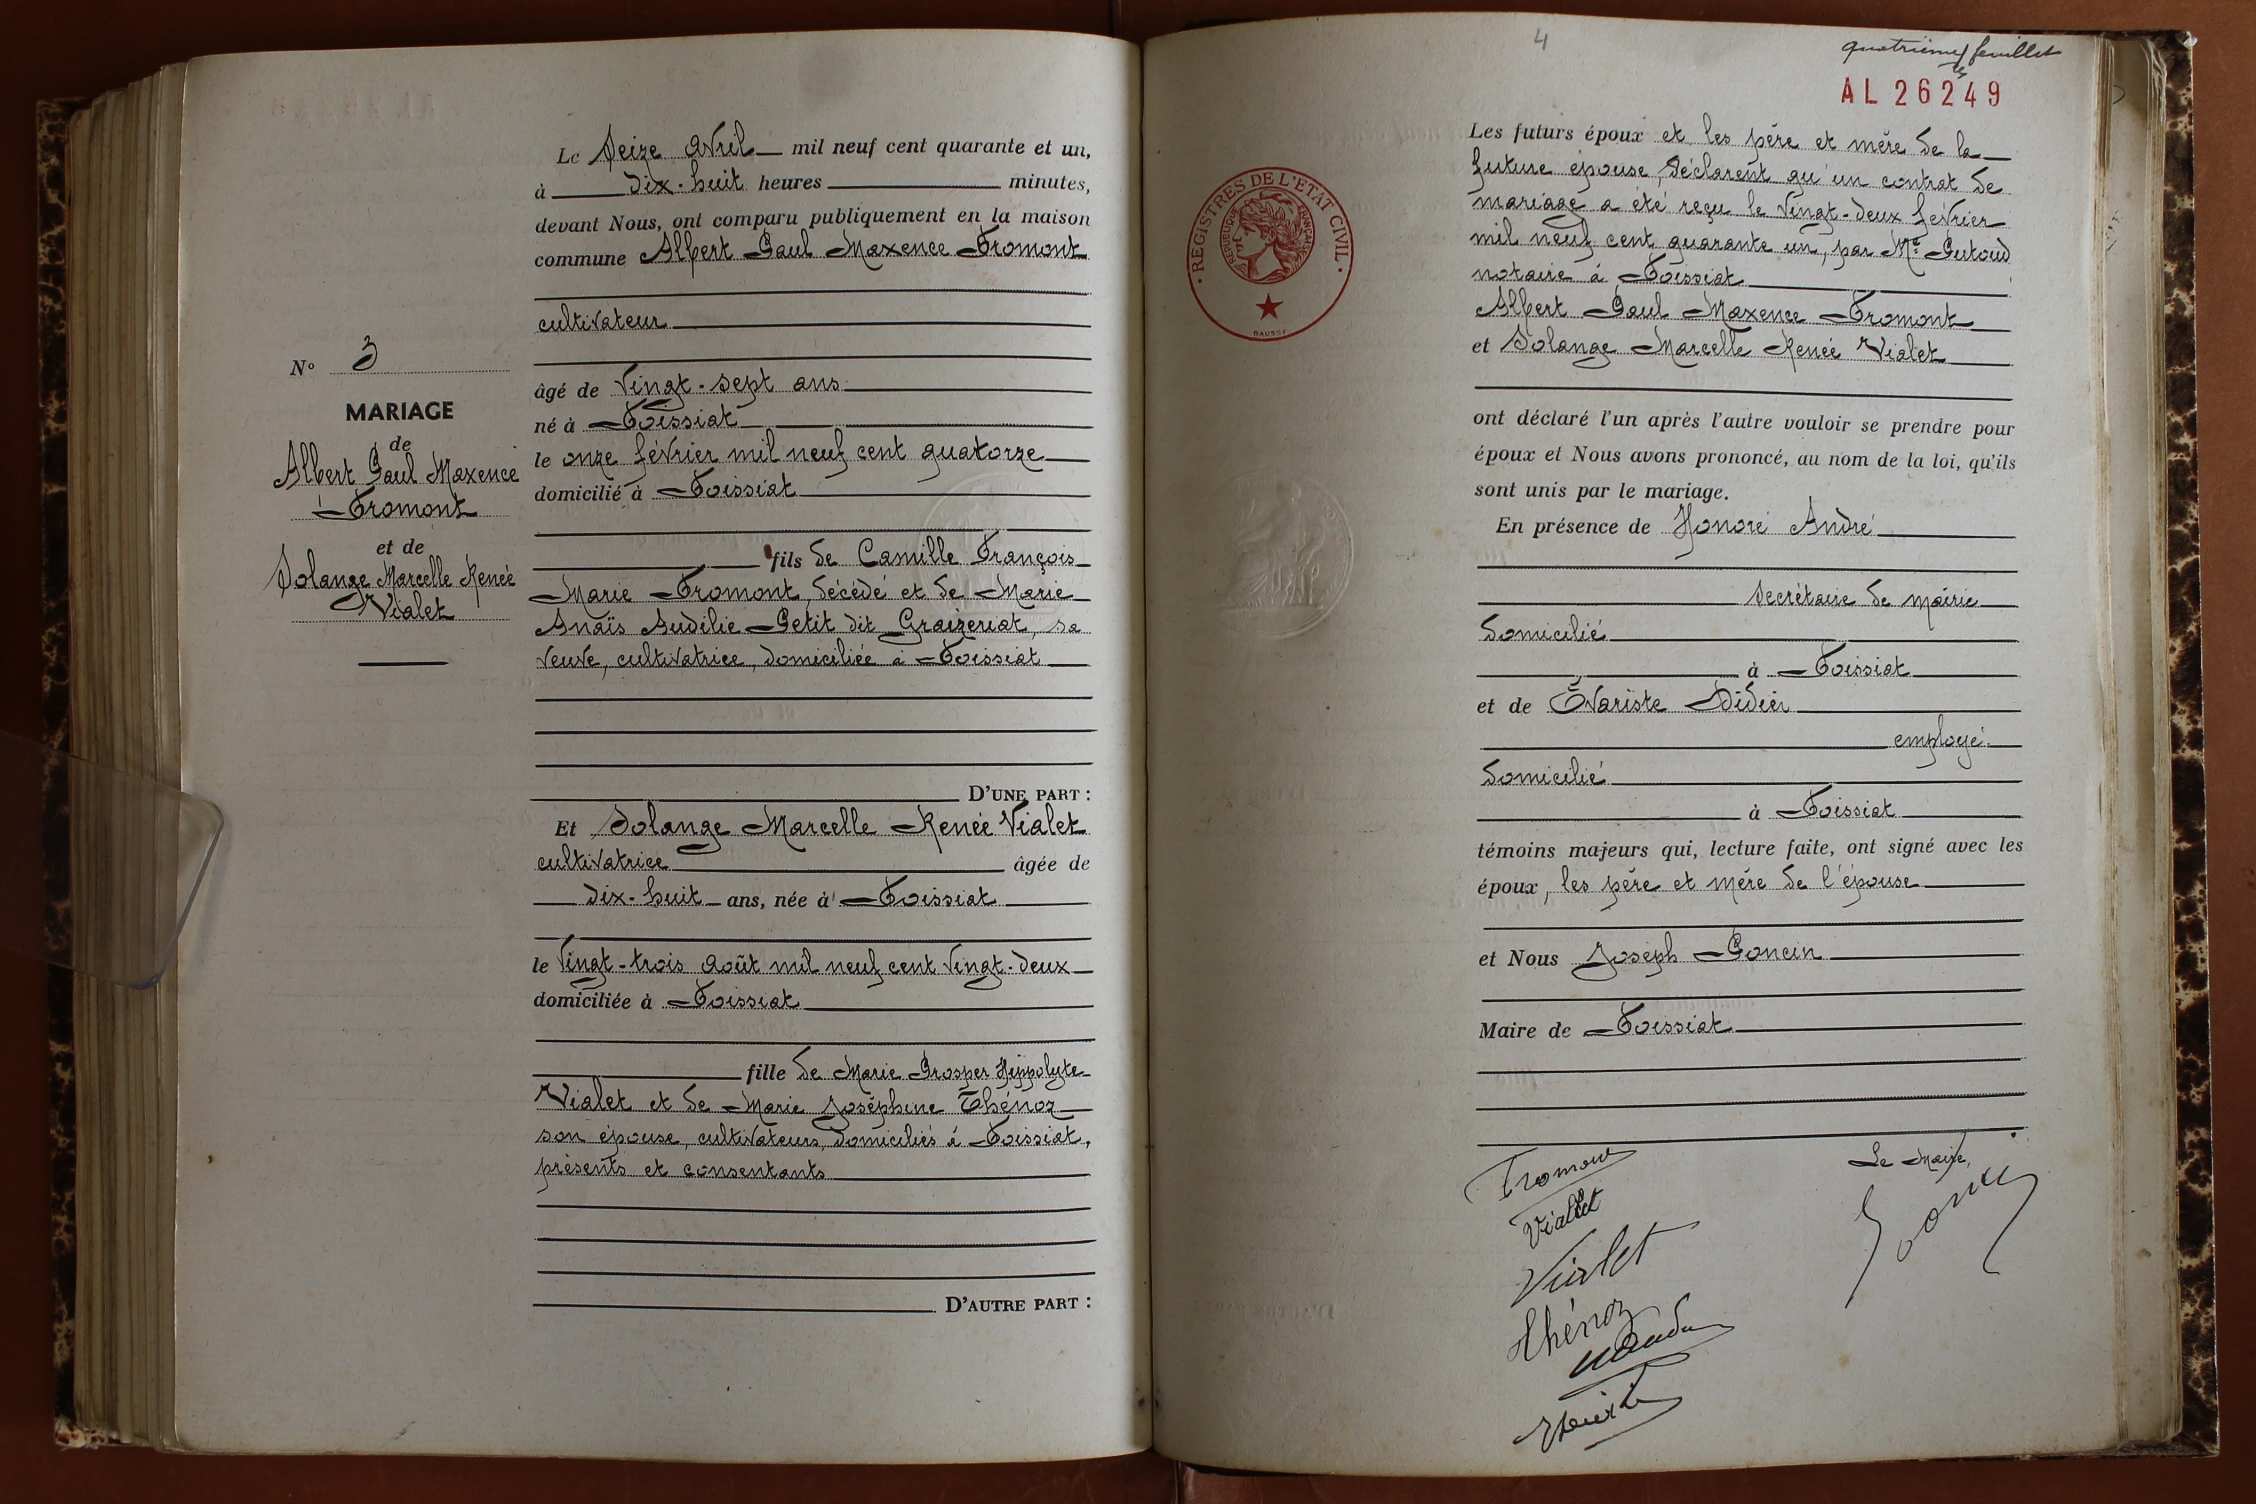 N° 3
MARIAGE
de
Albert Paul Maxence
Fromont
et de
Solange Marcelle Renée
Vialet
Le Seize Avril mil neuf cent quarante et un,
à dix-huit heures minutes,
devant Nous, ont comparu publiquement en la maison
commune Albert Paul Maxence Fromont
cultivateur
âgé de Vingt-sept ans
né à Foissiat
le onze février mil neuf cent quatorze
domicilié à Foissiat
fils de Camille François
Marie Fromont, décédé et de Marie
Anaïs Audilie Petit dit Graizeriat, sa
veuve, cultivatrice, domiciliée à Foissiat
D'UNE PART :
Et Solange Marcelle Renée Vialet
cultivatrice âgée de
dix-huit ans, née à Foissiat
le Vingt-trois Août mil neuf cent vingt-deux
domiciliée à Foissiat
fille de Marie Prosper Hippolyte
Vialet et de Marie Joséphine Thénoz
son épouse, cultivateurs, domiciliés à Foissiat,
présents et consentants
D'AUTRE PART :
4
quatrième feuillet
AL 26249
REGISTRES DE L'ÉTAT CIVIL
REPUBLIQUE FRANÇAISE
Les futurs époux et les père et mère de la
future épouse, déclarent qu'un contrat de
mariage a été reçu le vingt-deux février
mil neuf cent quarante un, par Me Putoud
notaire à Foissiat
Albert Paul Maxence Fromont
et Solange Marcelle Renée Vialet
ont déclaré l'un après l'autre vouloir se prendre pour
époux et Nous avons prononcé, au nom de la loi, qu'ils
sont unis par le mariage.
En présence de Honoré André
secrétaire de mairie
domicilié
à Foissiat
et de Évariste Didier
employé
domicilié
à Foissiat
témoins majeurs qui, lecture faite, ont signé avec les
époux, les père et mère de l'épouse
et Nous Joseph Poncin
Maire de Foissiat
Le Maire,
Fromont
Viallet
Vialet
Thénoz